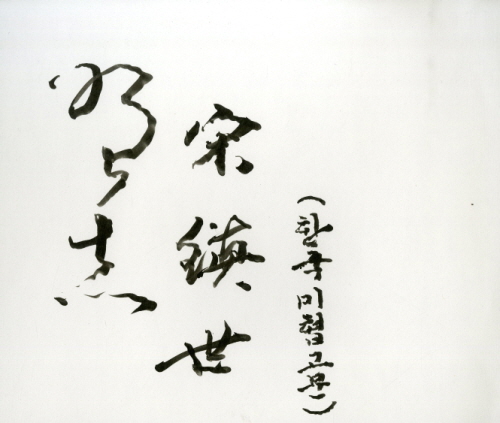 (한국미협고문)
宋鎮世
志